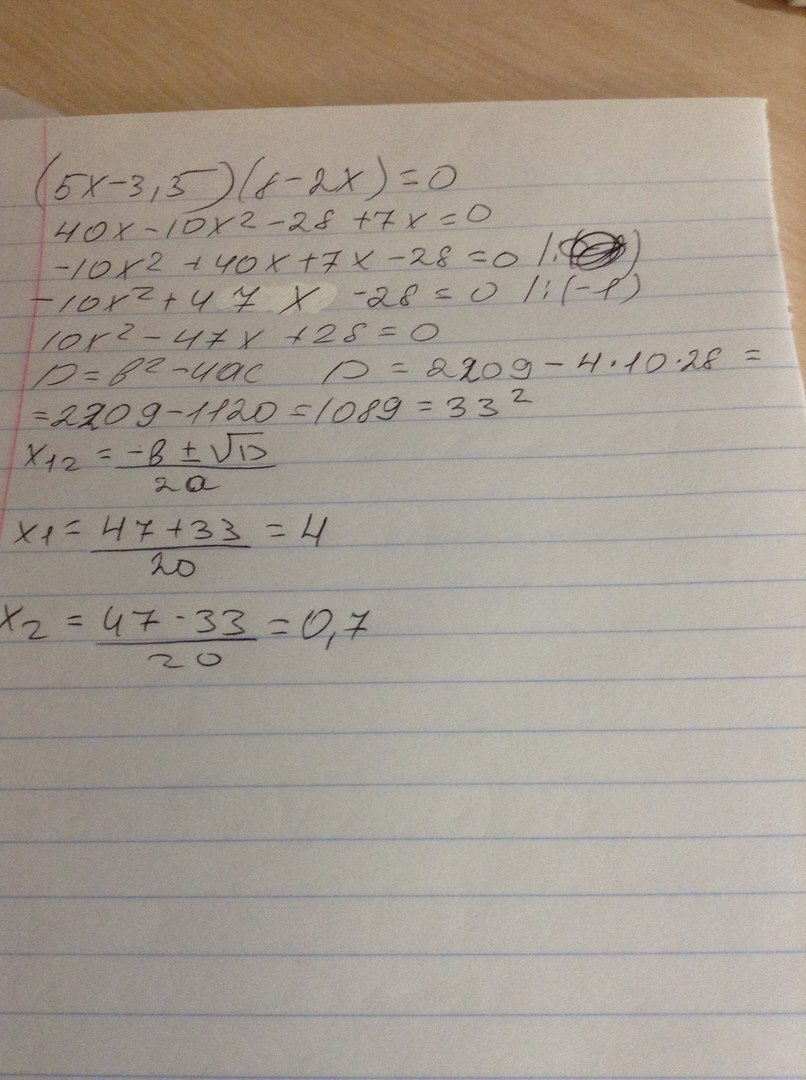 (5x-3,5)(8-2x)=0
40x-10x²-28+7x=0
-10x²+40x+7x-28=0 |:( )
-10x²+47x-28=0 |:(-1)
10x²-47x+28=0
D=b²-4ac D=2209-4·10·28=
=2209-1120=1089=33²
x₁₂=(-b±√D)/2a
x₁=(47+33)/20=4
x₂=(47-33)/20=0,7